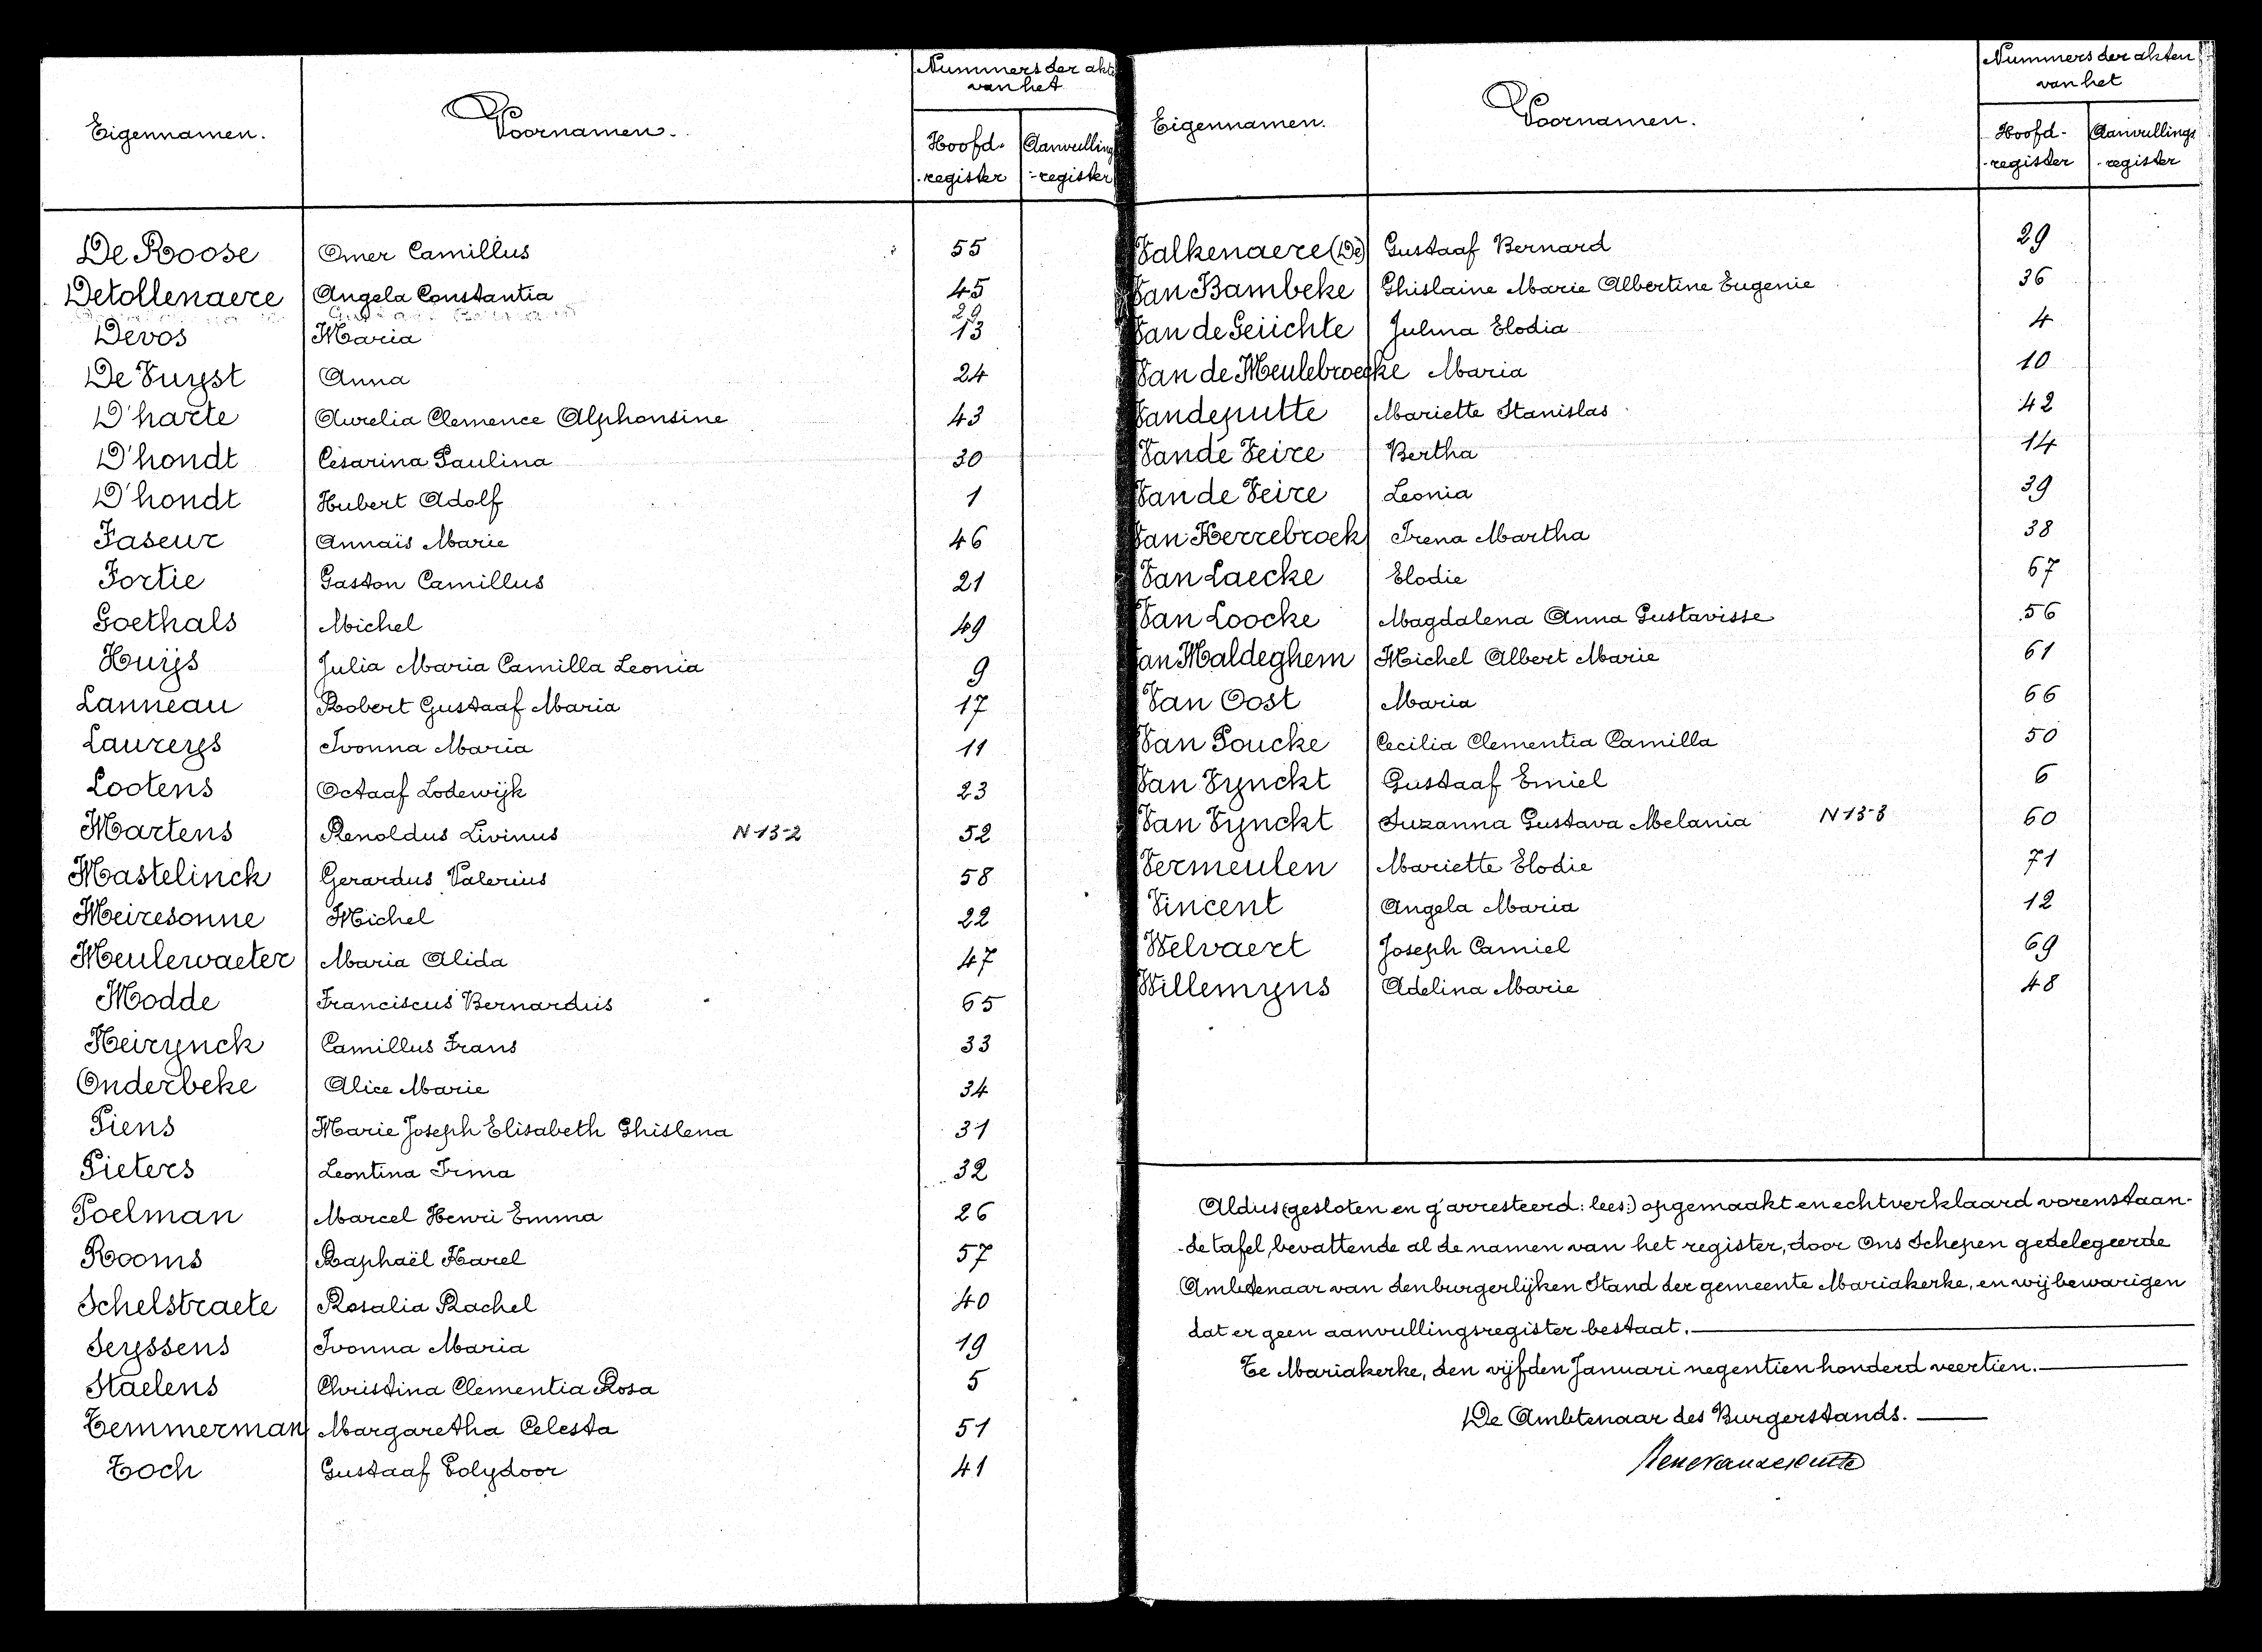 Eigennamen. Voornamen. Nummers der akte
van het
Hoofd- Aanvulling
-register -register
De Roose Omer Camillus 55
Detollenaere Angela Constantia 45
Devos Maria 13
De Vuyst Anna 24
D'harte Aurelia Clemence Alphonsine 43
D'hondt Césarina Paulina 30
D'hondt Hubert Adolf 1
Faseur Annaïs Marie 46
Fortie Gaston Camillus 21
Goethals Michel 49
Huijs Julia Maria Camilla Leonia 9
Lanneau Robert Gustaaf Maria 17
Laureys Ivonna Maria 11
Lootens Octaaf Lodewijk 23
Martens Renoldus Livinus N 13-2 52
Mastelinck Gerardus Valerius 58
Meiresonne Michel 22
Meulewaeter Maria Alida 47
Modde Franciscus Bernardus 65
Neirynck Camillus Frans 33
Onderbeke Alice Marie 34
Piens Marie Joseph Elisabeth Ghislena 31
Pieters Leontina Irma 32
Poelman Marcel Henri Emma 26
Rooms Raphaël Karel 57
Schelstraete Rosalia Rachel 40
Seyssens Ivonna Maria 19
Staelens Christina Clementia Rosa 5
Temmerman Margaretha Celesta 51
Toch Gustaaf Polydoor 41
Eigennamen. Voornamen. Nummers der akten
van het
Hoofd- Aanvullings
-register -register
Valkenaere (De) Gustaaf Bernard 29
Van Bambeke Ghislaine Marie Albertine Eugenie 36
Van de Geiichte Julma Elodia 4
Van de Meulebroecke Maria 10
Vandeputte Mariette Stanislas 42
Van de Veire Bertha 14
Van de Veire Leonia 39
Van Kerrebroek Irena Martha 38
Van Laecke Elodie 67
Van Loocke Magdalena Anna Gustavisse 56
Van Maldeghem Michel Albert Marie 61
Van Oost Maria 66
Van Poucke Cecilia Clementia Camilla 50
Van Vynckt Gustaaf Emiel 6
Van Vynckt Suzanna Gustava Melania N 13-3 60
Vermeulen Mariette Elodie 71
Vincent Angela Maria 12
Welvaert Joseph Camiel 69
Willemyns Adelina Marie 48
Aldus (gesloten en g'arresteerd: lees:) opgemaakt en echtverklaard vorenstaan-
-de tafel, bevattende al de namen van het register, door Ons Schepen gedelegeerde
Ambtenaar van den burgerlijken Stand der gemeente Mariakerke, en wij bewarigen
dat er geen aanvullingsregister bestaat.
Te Mariakerke, den vijfden Januari negentien honderd veertien.
De Ambtenaar des Burgerstands.